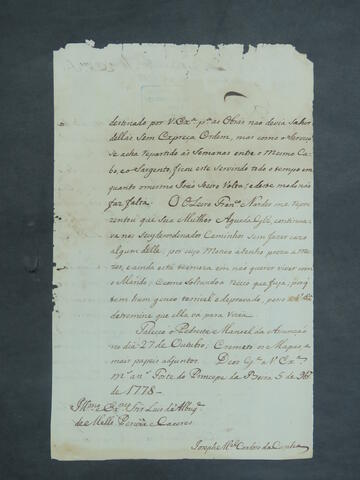 destinado por V. Ex.ª p.ª as Obras nao devia sahir
dellas Sem Expreça Ordem, mas como o Serviço
se acha repartido ás Semanas entre o mesmo Ca-
bo, e o Sargento, ficou este Servindo todo o tempo em
quanto o mesmo João Volta; e deste modo não
faz falta. O Fran.co Nardes me repre-
zentou que Sua Mulher Agueda continua-
va no Seu Caminho, Sem fazer cazo
algum delle; por cujo Motivo a tenho preza a me-
zes, e ainda está teimoza em não querer viver com
o Marido; Como Soltando a Receo que fuja, por q.
tem hum genio terrivel e depravado, peço a V. Ex.ª
determine que ella vá para Viria.
Faleceo o Pedestre Manoel da Asumção
no dia 27 de Outubro; e remeto os Mapas, e
mais papeis adjuntos. Deos G.e a V. Ex.ª
m.s an.s Forte do Principe da Beira 5 de 9br.o
de 1778 -
Ill.mo e Ex.mo Snr Luis de Albuq.e
de Mello Pereira e Caceres
Joseph M.el Cardozo da Cunha